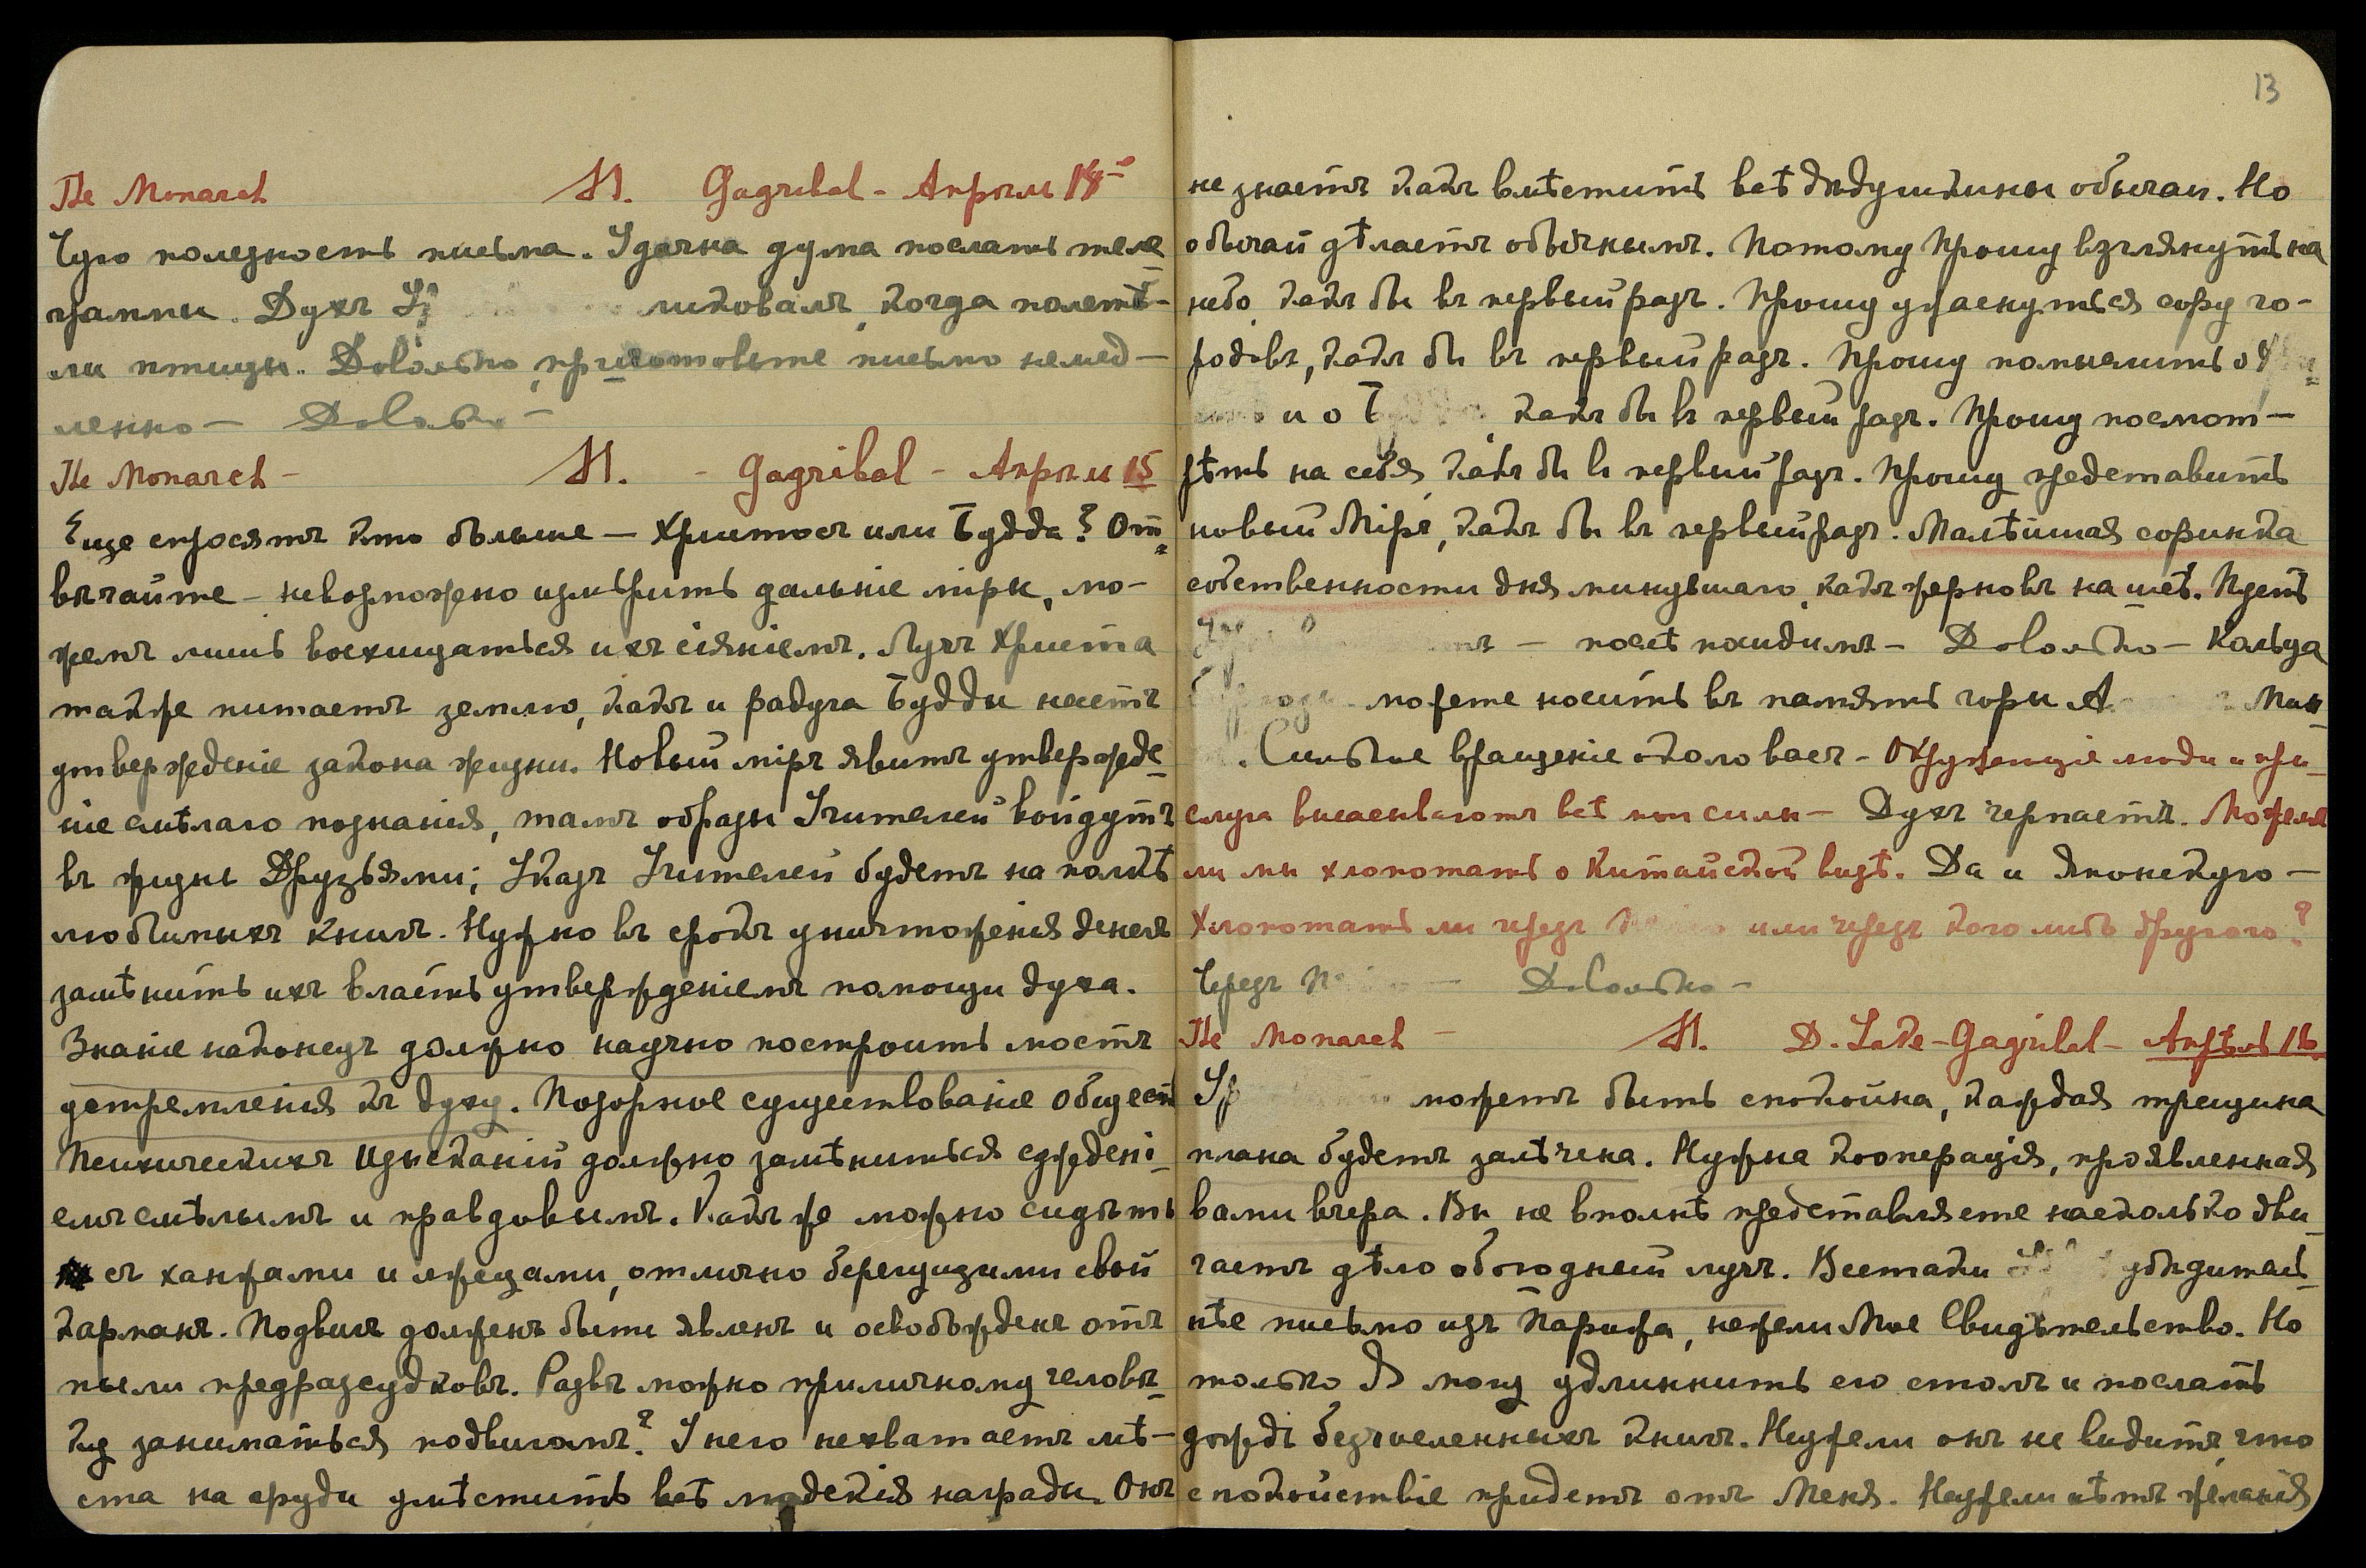 The Monarch М. Gagribal - Апрѣль 14
Чую полезность письма. Удачна дума послать теле
граммы. Духъ ликовалъ, когда полетѣ-
ли птицы. Довольно, приготовьте письмо немед-
ленно - Довольно -
The Monarch - М. - Gagribal - Апрѣль 15
Еще спросятъ кто больше - Христосъ или Будда? От=
вѣчайте - невозможно измѣрить дальніе міры, мо-
жемъ лишь восхищаться ихъ сіяніемъ. Лучъ Христа
также питаетъ землю, какъ и радуга Будды несетъ
утвержденіе закона жизни. Новый міръ явитъ утвержде=
ніе смѣлаго познанія, тамъ образы Учителей войдутъ
въ жизнь Друзьями; Указъ Учителей будетъ на полкѣ
любимыхъ книгъ. Нужно въ срокъ уничтоженія денегъ
замѣнить ихъ власть утвержденіемъ помощи духа.
Знаніе наконецъ должно научно построить мостъ
устремленія къ духу. Позорное существованіе Общест
Психическихъ Изысканій должно замѣниться сужден
емъ смѣлымъ и правдовымъ. Какъ же можно сидѣть
съ ханжами и лжецами, отлично берегущими свой
карманъ. Подвигъ долженъ быть явленъ и освобожденъ отъ
пыли предразсудковъ. Развѣ можно приличному человѣ=
ку заниматься подвигомъ? У него нехватаетъ мѣ-
ста на груди умѣстить всѣ людскія награды. Онъ
13
не знаетъ какъ вмѣстить всѣ дѣдушкины обычаи. Но
обычай дѣлаетъ обычнымъ. Потому Прошу взглянуть на
небо, какъ бы въ первый разъ. Прошу ужаснуться сору го-
родовъ, какъ бы въ первый разъ. Прошу помыслить о
и о какъ бы въ первый разъ. Прошу посмот-
рѣть на себя, какъ бы въ первый разъ. Прошу представить
новый Міръ, какъ бы въ первый разъ. Малѣйшая соринка
собственности дня минувшаго, какъ жерновъ на шеѣ. Идетъ
- посѣ - Довольно - Кольца
можете носить въ память горы А
. Сильное вращеніе около васъ - Окружающіе люди и при=
слуга высасываютъ всѣ мои силы - Духъ черпаетъ. Можемъ
ли мы хлопотать о Китайской визѣ. Да и Японскую -
Хлопотать ли чрезъ или чрезъ кого либо другого?
Чрезъ - Довольно -
The Monarch - М. D. Lake - Gagribal - Апрѣль 16
можетъ быть спокойна, каждая трещина
плана будетъ залѣчена. Нужна кооперація, проявленная
вами вчера. Вы не вполнѣ представляете насколько дви=
гаетъ дѣло обоюдный лучъ. Всетаки убѣдитель=
нѣе письмо изъ Парижа, нежели Мое Свидѣтельство. Но
только Я могу удлиннить его столъ и послать
дождь безчисленныхъ книгъ. Неужели онъ не видитъ, что
спокойствіе придетъ отъ Меня. Неужели нѣтъ желанія